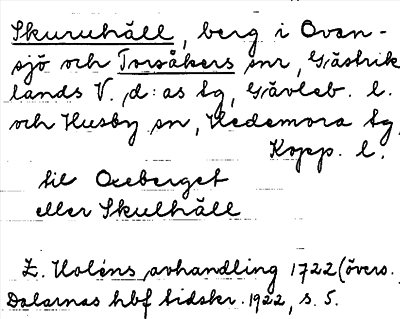 Skuruhäll, berg i Ovan-
sjö och Torsåkers snr, Gästrik
lands V. d:as tg, Gävleb. l.
och Husby sn, Hedemora tg,
Kopp. l.
til Oxeberget
eller Skulhäll
Z. Holéns avhandling 1722 (övers.
Dalarnas hbf tidskr. 1922, s. 5.